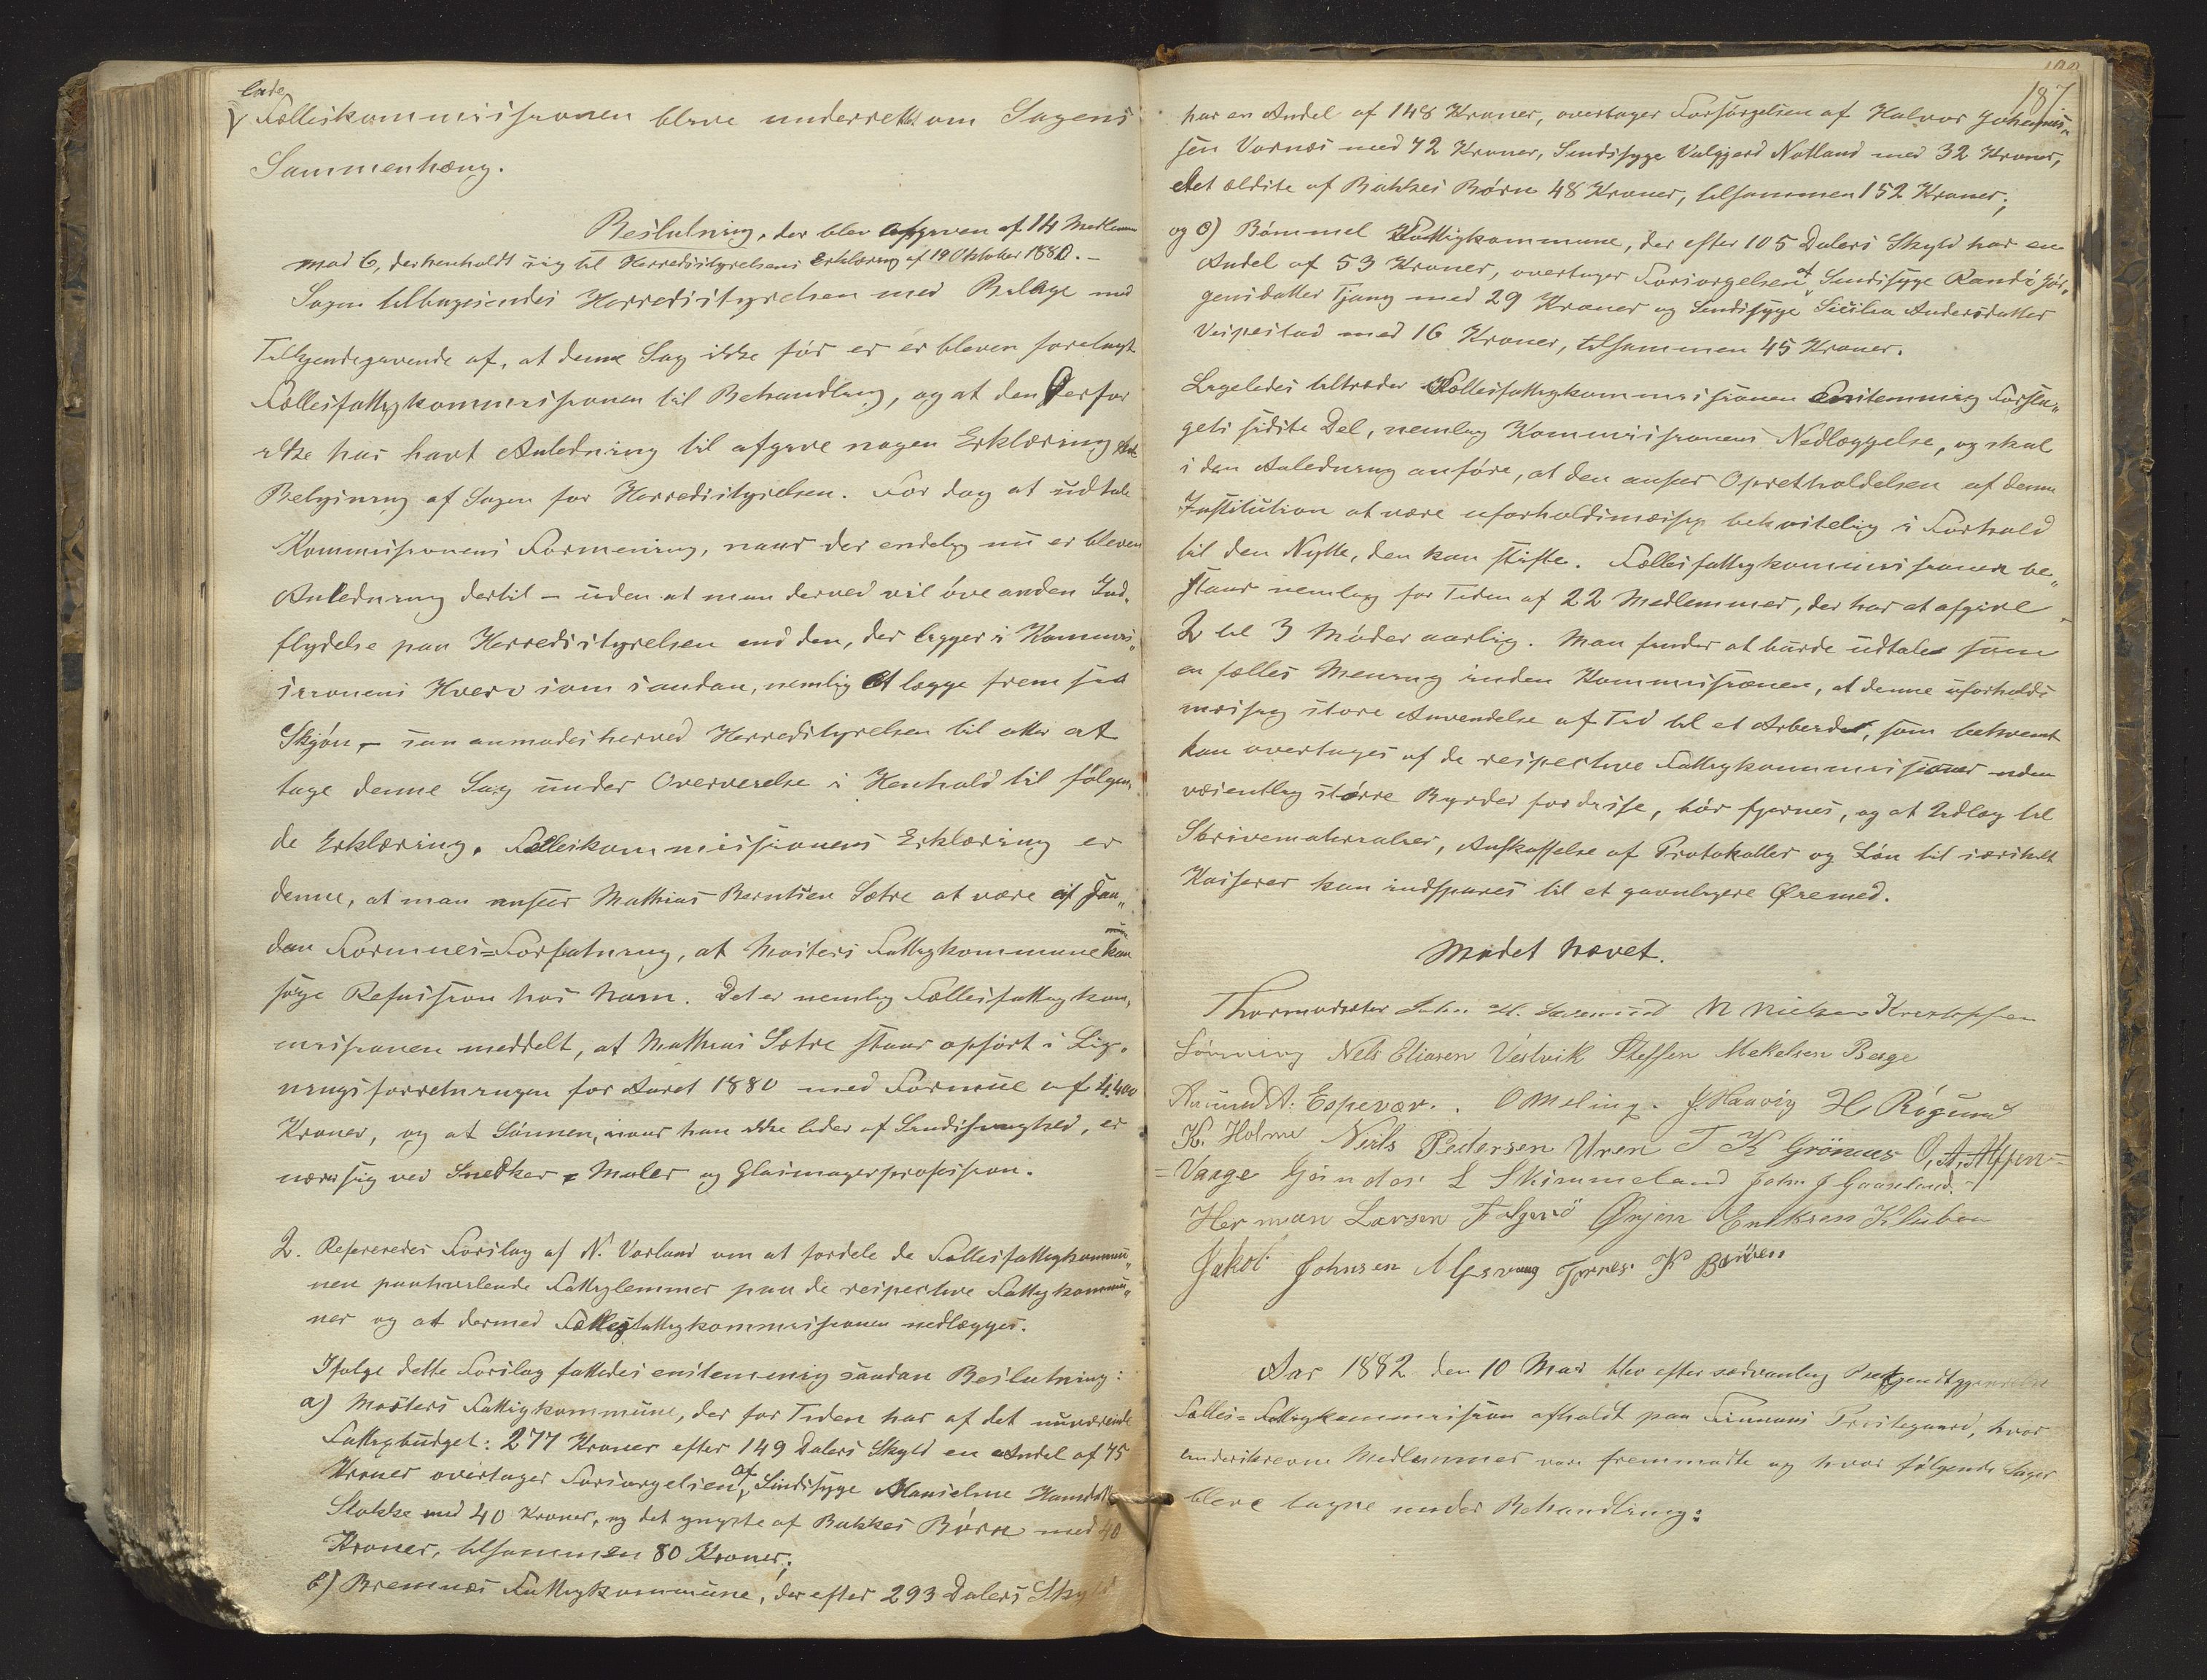 lade
Fælleskommissionen bleve underrettet om Sagens
Sammenhæng.
Beslutning, der blev afgiven af 14 Medlemmer
mod 6, der henholdt sig til Herredsstyrelsens Erklæring af 19 Oktober 1880. –
Sagen tilbagesendes Herredsstyrelsen med Bilage med
Tilkjendegivende af, at denne Sag ikke før er er bleven forelagt
Fællesfattigkommissionen til Behandling, og at den derfor
ikke har havt Anledning til afgive nogen Erklæring til
Belysning af Sagen for Herredsstyrelsen. For dog at udtale
Kommissionens Formening, naar der endelig nu er bleven
Anledning dertil – uden at man derved vil øve anden Ind-
flydelse paa Herredsstyrelsen end den, der ligger i Kommis„
sionens Hverv som saadan, nemlig at lægge frem sit
Skjøn, – saa anmodes herved Herredsstyrelsen til atter at
tage denne Sag under Overveielse i Henhold til følgen„
de Erklæring. Fælleskommissionens Erklæring er
denne, at man anser Mathias Berntsen Sætre at være i saa„
dan Formues=Forfatning, at Mosters Fattigkommune kan
søge Refusion hos ham. Det er nemlig Fællesfattigkom„
missionen meddelt, at Mathias Sætre staar opført i Lig„
ningsforretningen for Aaret 1880 med Formue af 4.400
Kroner, og at Sønnen, naar han ikke lider af Sindssvaghed, er
nærer sig ved Snedker=Maler og Glasmagerprofession.
2. Refereredes Forslag af N. Vorland om at fordele de Fællesfattigkommu„
nen paahvilende Fattiglemmer paa de respective Fattigkommu„
ner og at dermed Fællesfattigkommissionen nedlægges.
Ifølge dette Forslag fattedes enstemmig saadan Beslutning:
a) Mosters Fattigkommune, der for Tiden har af det nuværende
Fattigbudget: 277 Kroner efter 149 Dalers Skyld en Andel af 75
Kroner overtager Forsørgelsen af Sindssyge Hansdatter
Stokke med 40 Kroner, og det yngste af Bakkes Børn med 40
Kroner, tilsammen 80 Kroner;
b) Bremnæs Fattigkommune, der efter 293 Dalers Skyld
187
har en Andel af 148 Kroner, overtager Forsørgelsen af Halvor Johannes„
sen Vornæs med 72 Kroner, Sindssyge Valgjerd Notland med 32 Kroner,
det ældste af Bakkes Børn 48 Kroner, tilsammen 152 Kroner;
og c) Bømmel Fattigkommune, der efter 105 Dalers Skyld har en
Andel af 53 Kroner, overtager Forsørgelsen af Sindssyge Randi Jør„
gensdatter Tjong med 29 Kroner og Sindssyge Sicilia Andersdatter
Vespestad med 16 Kroner, tilsammen 45 Kroner.
Ligeledes tiltræder Fællesfattigkommissionen enstemmig Forsla„
gets sidste Del, nemlig Kommissionens Nedlæggelse, og skal
i den Anledning anføre, at den anser Opretholdelsen af denne
Institution at være uforholdsmæssig bekostelig i Forhold
til den Nytte, den kan stifte. Fællesfattigkommissionen be„
staar nemlig for Tiden af 22 Medlemmer, der har at afgive
2 til 3 Møder aarlig. Man finder at burde udtale som
en fælles Mening inden Kommissionen, at denne uforholds
mæssig store Anvendelse af Tid til et Arbeide, som bekvemt
kan overtages af de respective Fattigkommissioner uden
væsentlig større Byrder for disse, bør fjernes, og at Udlæg til
Skrivematerialier, Anskaffelse af Protokoller og Løn til særskilt
Kasserer kan indspares til et gavnligere Øiemed.
Mødet hævet.
Thormodsæter John H. N Nielsen Kristoffer
Lønning Nels Eliasen Vestvik Steffen Mekelsen Berge
Amund A: Espevær. O Meling. J. Haavig H Røgsund
K. Holme Niels Pedersen Uren T K Grønnes O, A, Alfsen=
=Vaage Gjender L Skimmeland John J Gaaseland.
Herman Larsen Folgerø Ørjen Eriksen Kluben
Jakob Johnsen Alfsvaag Tørres K
Aar 1882 den 10 Mai blev efter sædvanlig
Fælles=Fattigkommission afholdt paa Finnaas Prestegaard, hvor
underskrevne Medlemmer vare fremmødte og hvor følgende Sager
bleve tagne under Behandling: